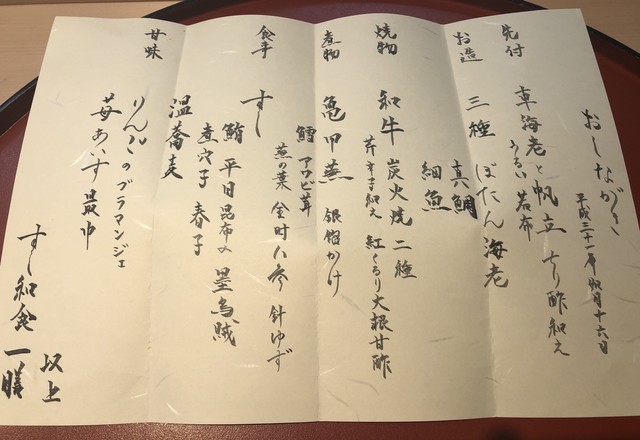 おしながき
平成三十一年 如月十六日
先付
車海老と帆立 ちり酢和え
うるい 若布
お造
三種 ぼたん海老
真鯛
細魚
焼物
和牛 炭火焼 二種
芹辛子和え 紅くるり大根甘酢
煮物
亀甲蒸 銀餡かけ
鱈 アワビ茸
蕪の葉 金時人参 針ゆず
食事
すし
鮪 平目昆布〆 墨烏賊
煮穴子 春子
温蕎麦
甘味
りんごのブラマンジェ
苺あいす最中
以上
すし和食 一膳